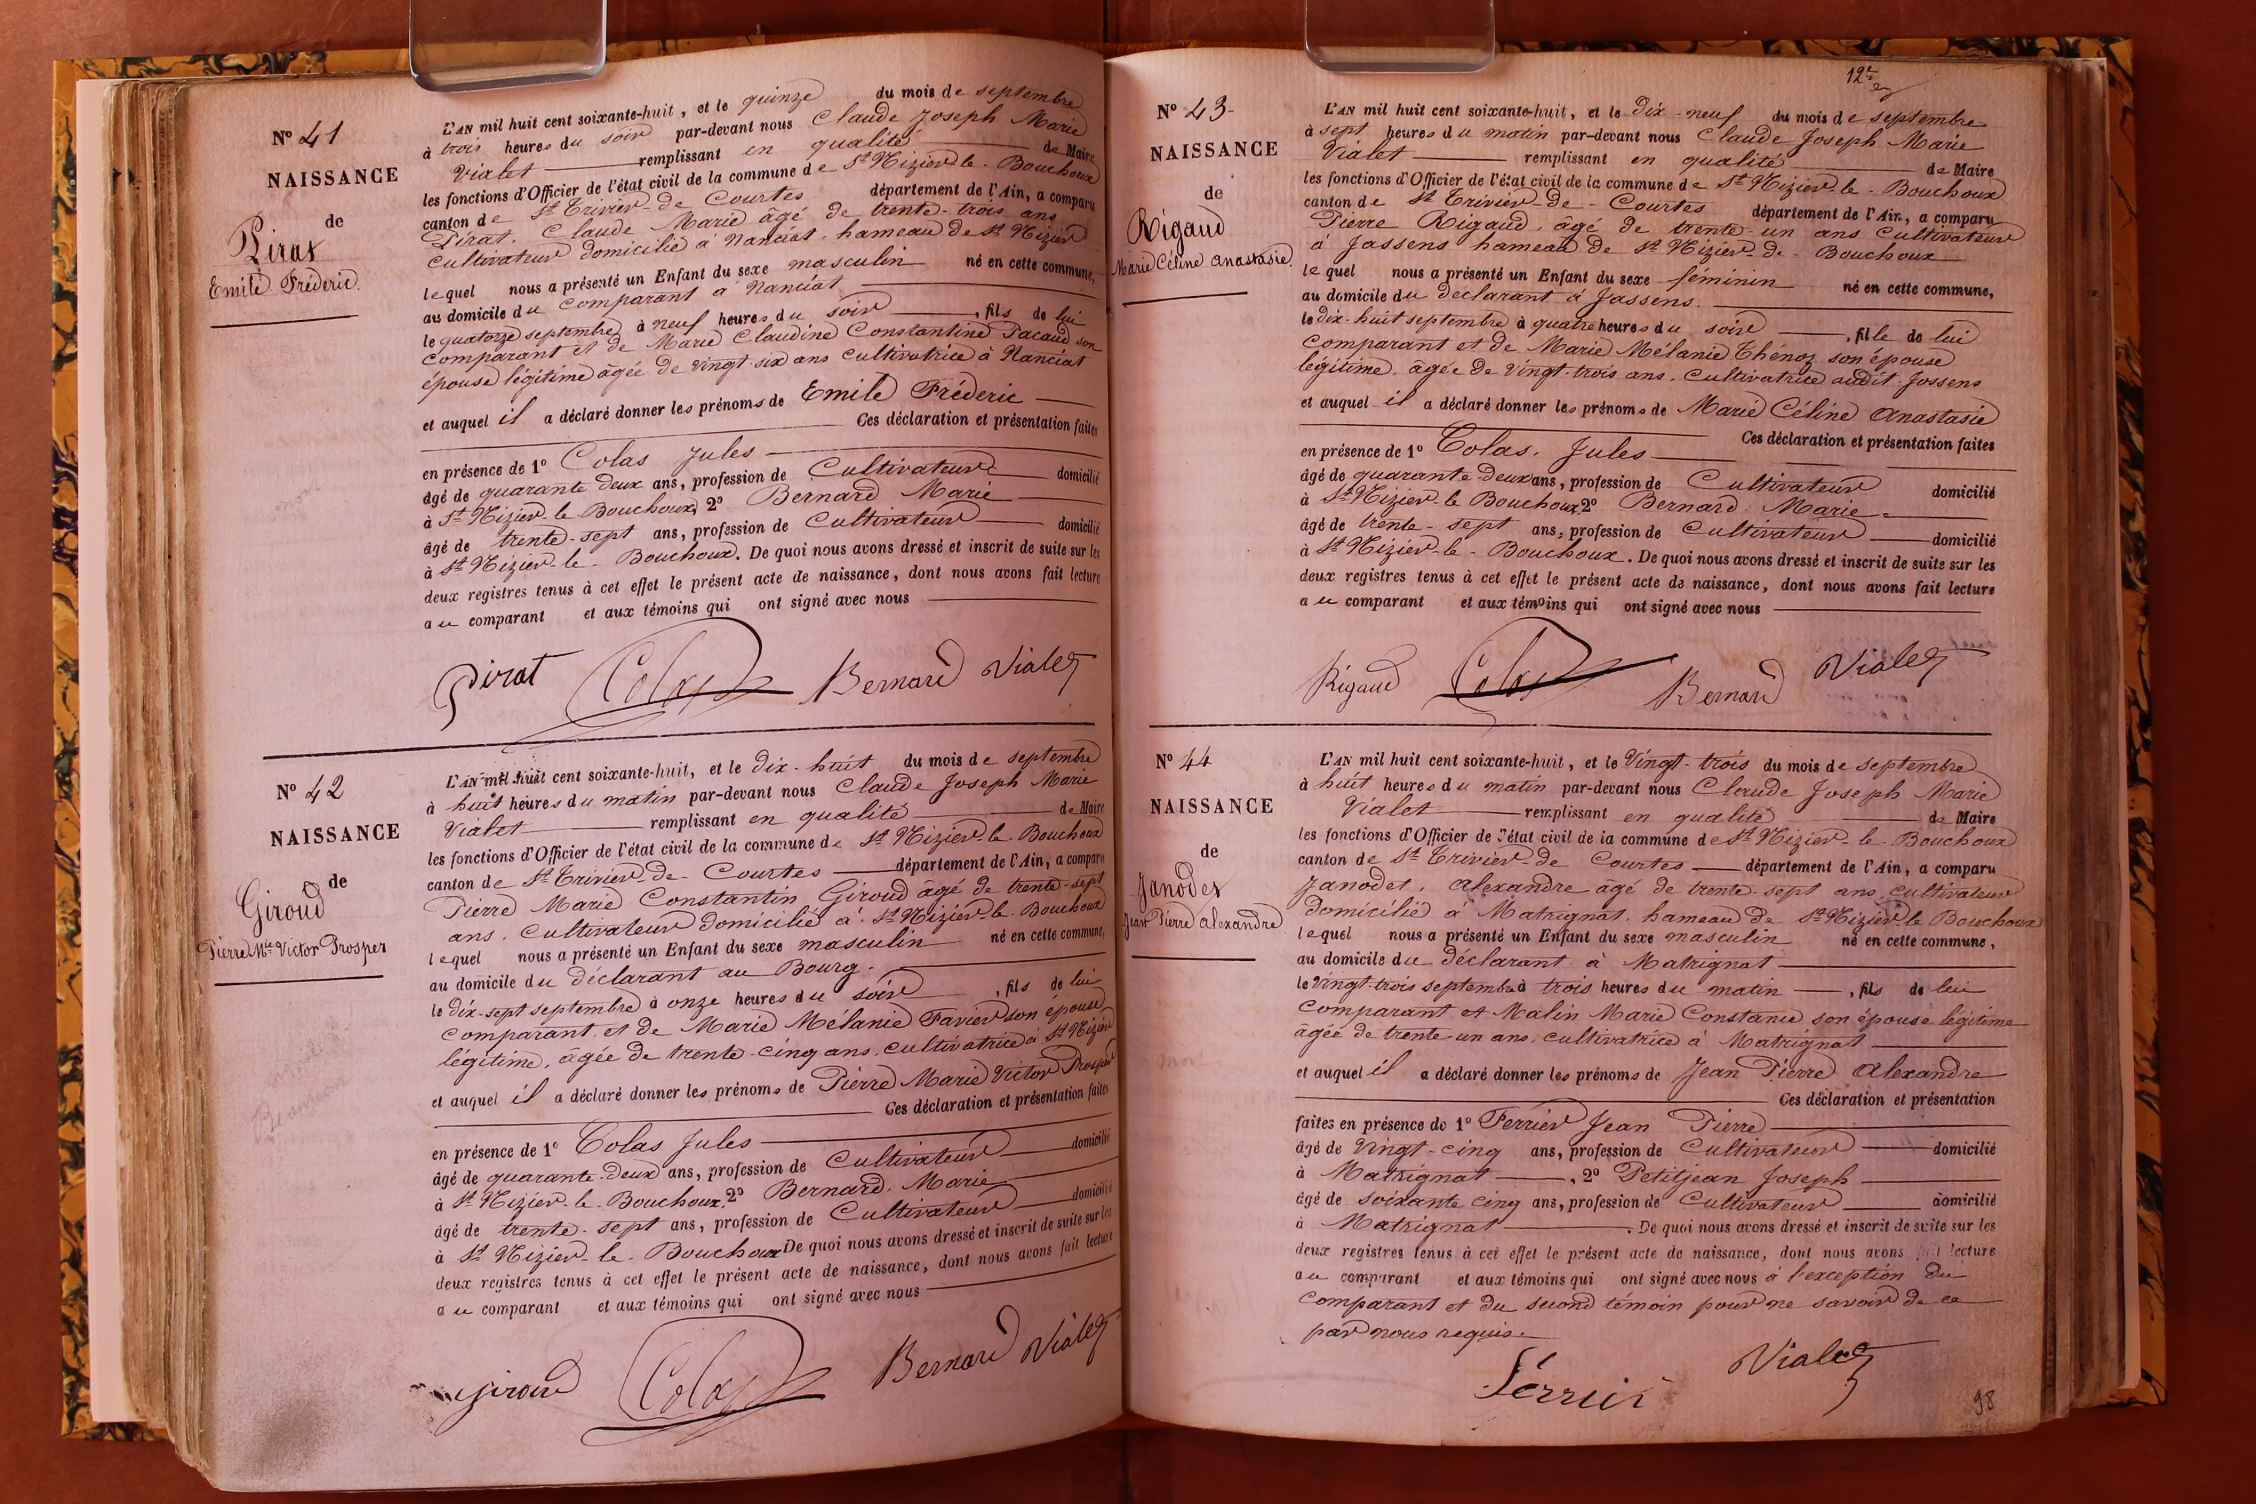 N° 41
NAISSANCE
de
Pirat
Emile Fréderic
L'AN mil huit cent soixante-huit, et le quinze du mois de septembre
à trois heures du soir par-devant nous Claude Joseph Marie
Vialet remplissant en qualité de Maire
les fonctions d'Officier de l'état civil de la commune de St Nizier-le-Bouchoux
canton de St Trivier-de-Courtes département de l'Ain, a comparu
Pirat. Claude Marie âgé de trente-trois ans
cultivateur domicilié à Nanciat. hameau de St Nizier
lequel nous a présenté un Enfant du sexe masculin né en cette commune,
au domicile du comparant à Nanciat
le quatorze septembre à neuf heures du soir, fils de lui
comparant et de Marie Claudine Constantine Pacaud son
épouse légitime âgée de vingt-six ans cultivatrice à Nanciat
et auquel il a déclaré donner les prénoms de Emile Fréderic
Ces déclaration et présentation faites
en présence de 1° Colas Jules
âgé de quarante deux ans, profession de Cultivateur domicilié
à St Nizier-le Bouchoux, 2° Bernard Marie
âgé de trente-sept ans, profession de Cultivateur domicilié
à St Nizier-le-Bouchoux. De quoi nous avons dressé et inscrit de suite sur les
deux registres tenus à cet effet le présent acte de naissance, dont nous avons fait lecture
au comparant et aux témoins qui ont signé avec nous
Pirat Colas Bernard Vialet
N° 42
NAISSANCE
de
Giroud
Pierre Mie Victor Prosper
L'AN mil huit cent soixante-huit, et le dix-huit du mois de septembre
à huit heures du matin par-devant nous Claude Joseph Marie
Vialet remplissant en qualité de Maire
les fonctions d'Officier de l'état civil de la commune de St Nizier-le-Bouchoux
canton de St Trivier-de-Courtes département de l'Ain, a comparu
Pierre Marie Constantin Giroud âgé de trente-sept
ans. cultivateur domicilié à St Nizier-le-Bouchoux
lequel nous a présenté un Enfant du sexe masculin né en cette commune,
au domicile du déclarant au Bourg.
le dix-sept septembre à onze heures du soir, fils de lui
comparant et de Marie Mélanie Favier son épouse
légitime, âgée de trente-cinq ans. cultivatrice à St Nizier
et auquel il a déclaré donner les prénoms de Pierre Marie Victor Prosper
Ces déclaration et présentation faites
en présence de 1° Colas Jules
âgé de quarante-deux ans, profession de Cultivateur domicilié
à St Nizier-le-Bouchoux, 2° Bernard. Marie
âgé de trente-sept ans, profession de Cultivateur domicilié
à St Nizier-le-Bouchoux De quoi nous avons dressé et inscrit de suite sur les
deux registres tenus à cet effet le présent acte de naissance, dont nous avons fait lecture
au comparant et aux témoins qui ont signé avec nous
Giroud Colas Bernard Vialet
12e
N° 43
NAISSANCE
de
Rigaud
Marie Céline Anastasie.
L'AN mil huit cent soixante-huit, et le dix-neuf du mois de septembre
à sept heures du matin par-devant nous Claude Joseph Marie
Vialet remplissant en qualité de Maire
les fonctions d'Officier de l'état civil de la commune de St Nizier-le-Bouchoux
canton de St Trivier-de-Courtes département de l'Ain, a comparu
Pierre Rigaud, âgé de trente-un ans cultivateur
à Jassens hameau de St Nizier-de-Bouchoux
lequel nous a présenté un Enfant du sexe féminin né en cette commune,
au domicile du déclarant à Jassens.
le dix-huit septembre à quatre heures du soir, fille de lui
comparant et de Marie Mélanie Thénoz son épouse
légitime. âgée de vingt-trois ans. cultivatrice audit Jossens
et auquel il a déclaré donner les prénoms de Marie Céline Anastasie
Ces déclaration et présentation faites
en présence de 1° Colas. Jules
âgé de quarante-deux ans, profession de Cultivateur domicilié
à St Nizier-le Bouchoux 2° Bernard. Marie
âgé de trente-sept ans, profession de Cultivateur domicilié
à St Nizier-le-Bouchoux. De quoi nous avons dressé et inscrit de suite sur les
deux registres tenus à cet effet le présent acte de naissance, dont nous avons fait lecture
au comparant et aux témoins qui ont signé avec nous
Rigaud Colas Bernard Vialet
N° 44
NAISSANCE
de
Janodet
Jean Pierre Alexandre
L'AN mil huit cent soixante-huit, et le vingt-trois du mois de septembre
à huit heures du matin par-devant nous Claude Joseph Marie
Vialet remplissant en qualité de Maire
les fonctions d'Officier de l'état civil de la commune de St Nizier-le Bouchoux
canton de St Trivier-de Courtes département de l'Ain, a comparu
Janodet. Alexandre âgé de trente-sept ans cultivateur
domicilié à Matrignat. hameau de St Nizier-le Bouchoux
lequel nous a présenté un Enfant du sexe masculin né en cette commune,
au domicile du déclarant à Matrignat
le vingt-trois septembre à trois heures du matin, fils de lui
comparant et Malin Marie Constance son épouse légitime
âgée de trente un ans, cultivatrice à Matrignat
et auquel il a déclaré donner les prénoms de Jean Pierre Alexandre
Ces déclaration et présentation
faites en présence de 1° Ferrier Jean Pierre
âgé de vingt-cinq ans, profession de Cultivateur domicilié
à Matrignat, 2° Petitjean Joseph
âgé de soixante cinq ans, profession de Cultivateur domicilié
à Matrignat. De quoi nous avons dressé et inscrit de suite sur les
deux registres tenus à cet effet le présent acte de naissance, dont nous avons fait lecture
au comparant et aux témoins qui ont signé avec nous à l'exception du
comparant et du second témoin pour ne savoir de ce
par nous requis.
Ferrier Vialet
98